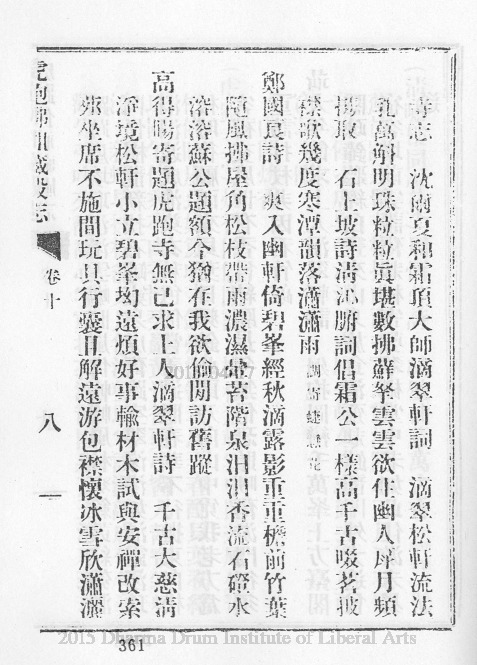 寺志　沈雨夏和霜頂大師滴翠軒詞　滴翠松軒流法
乳萬斛明珠粒粒眞堪數拂蘇拏雲雲欲住幽人戽月頻
掬取　石上坡詩淸沁腑詞倡霜公一樣高千古啜茗披
襟歌幾度寒潭韻落瀟瀟雨
鄭國良詩　爽入幽軒倚碧峯經秋滴露影重重檐前竹葉
隨風拂屋角松枝帶雨濃濕品苔階泉汩汩香流石磴水
溶溶蘇公題額今猶在我欲偷閒訪舊蹤
高得暘寄題虎跑寺無己求上人滴翠軒詩　千古大慈淸
淨境松軒小立碧峯坳遠煩好事輸材木試與安禪改索
茆坐席不施間玩具行囊且解遠游包襟懷冰雪欣瀟灑
虎跑佛祖藏殿志
卷十
八
361
2015 Dharma Drum Institute of Liberal Arts